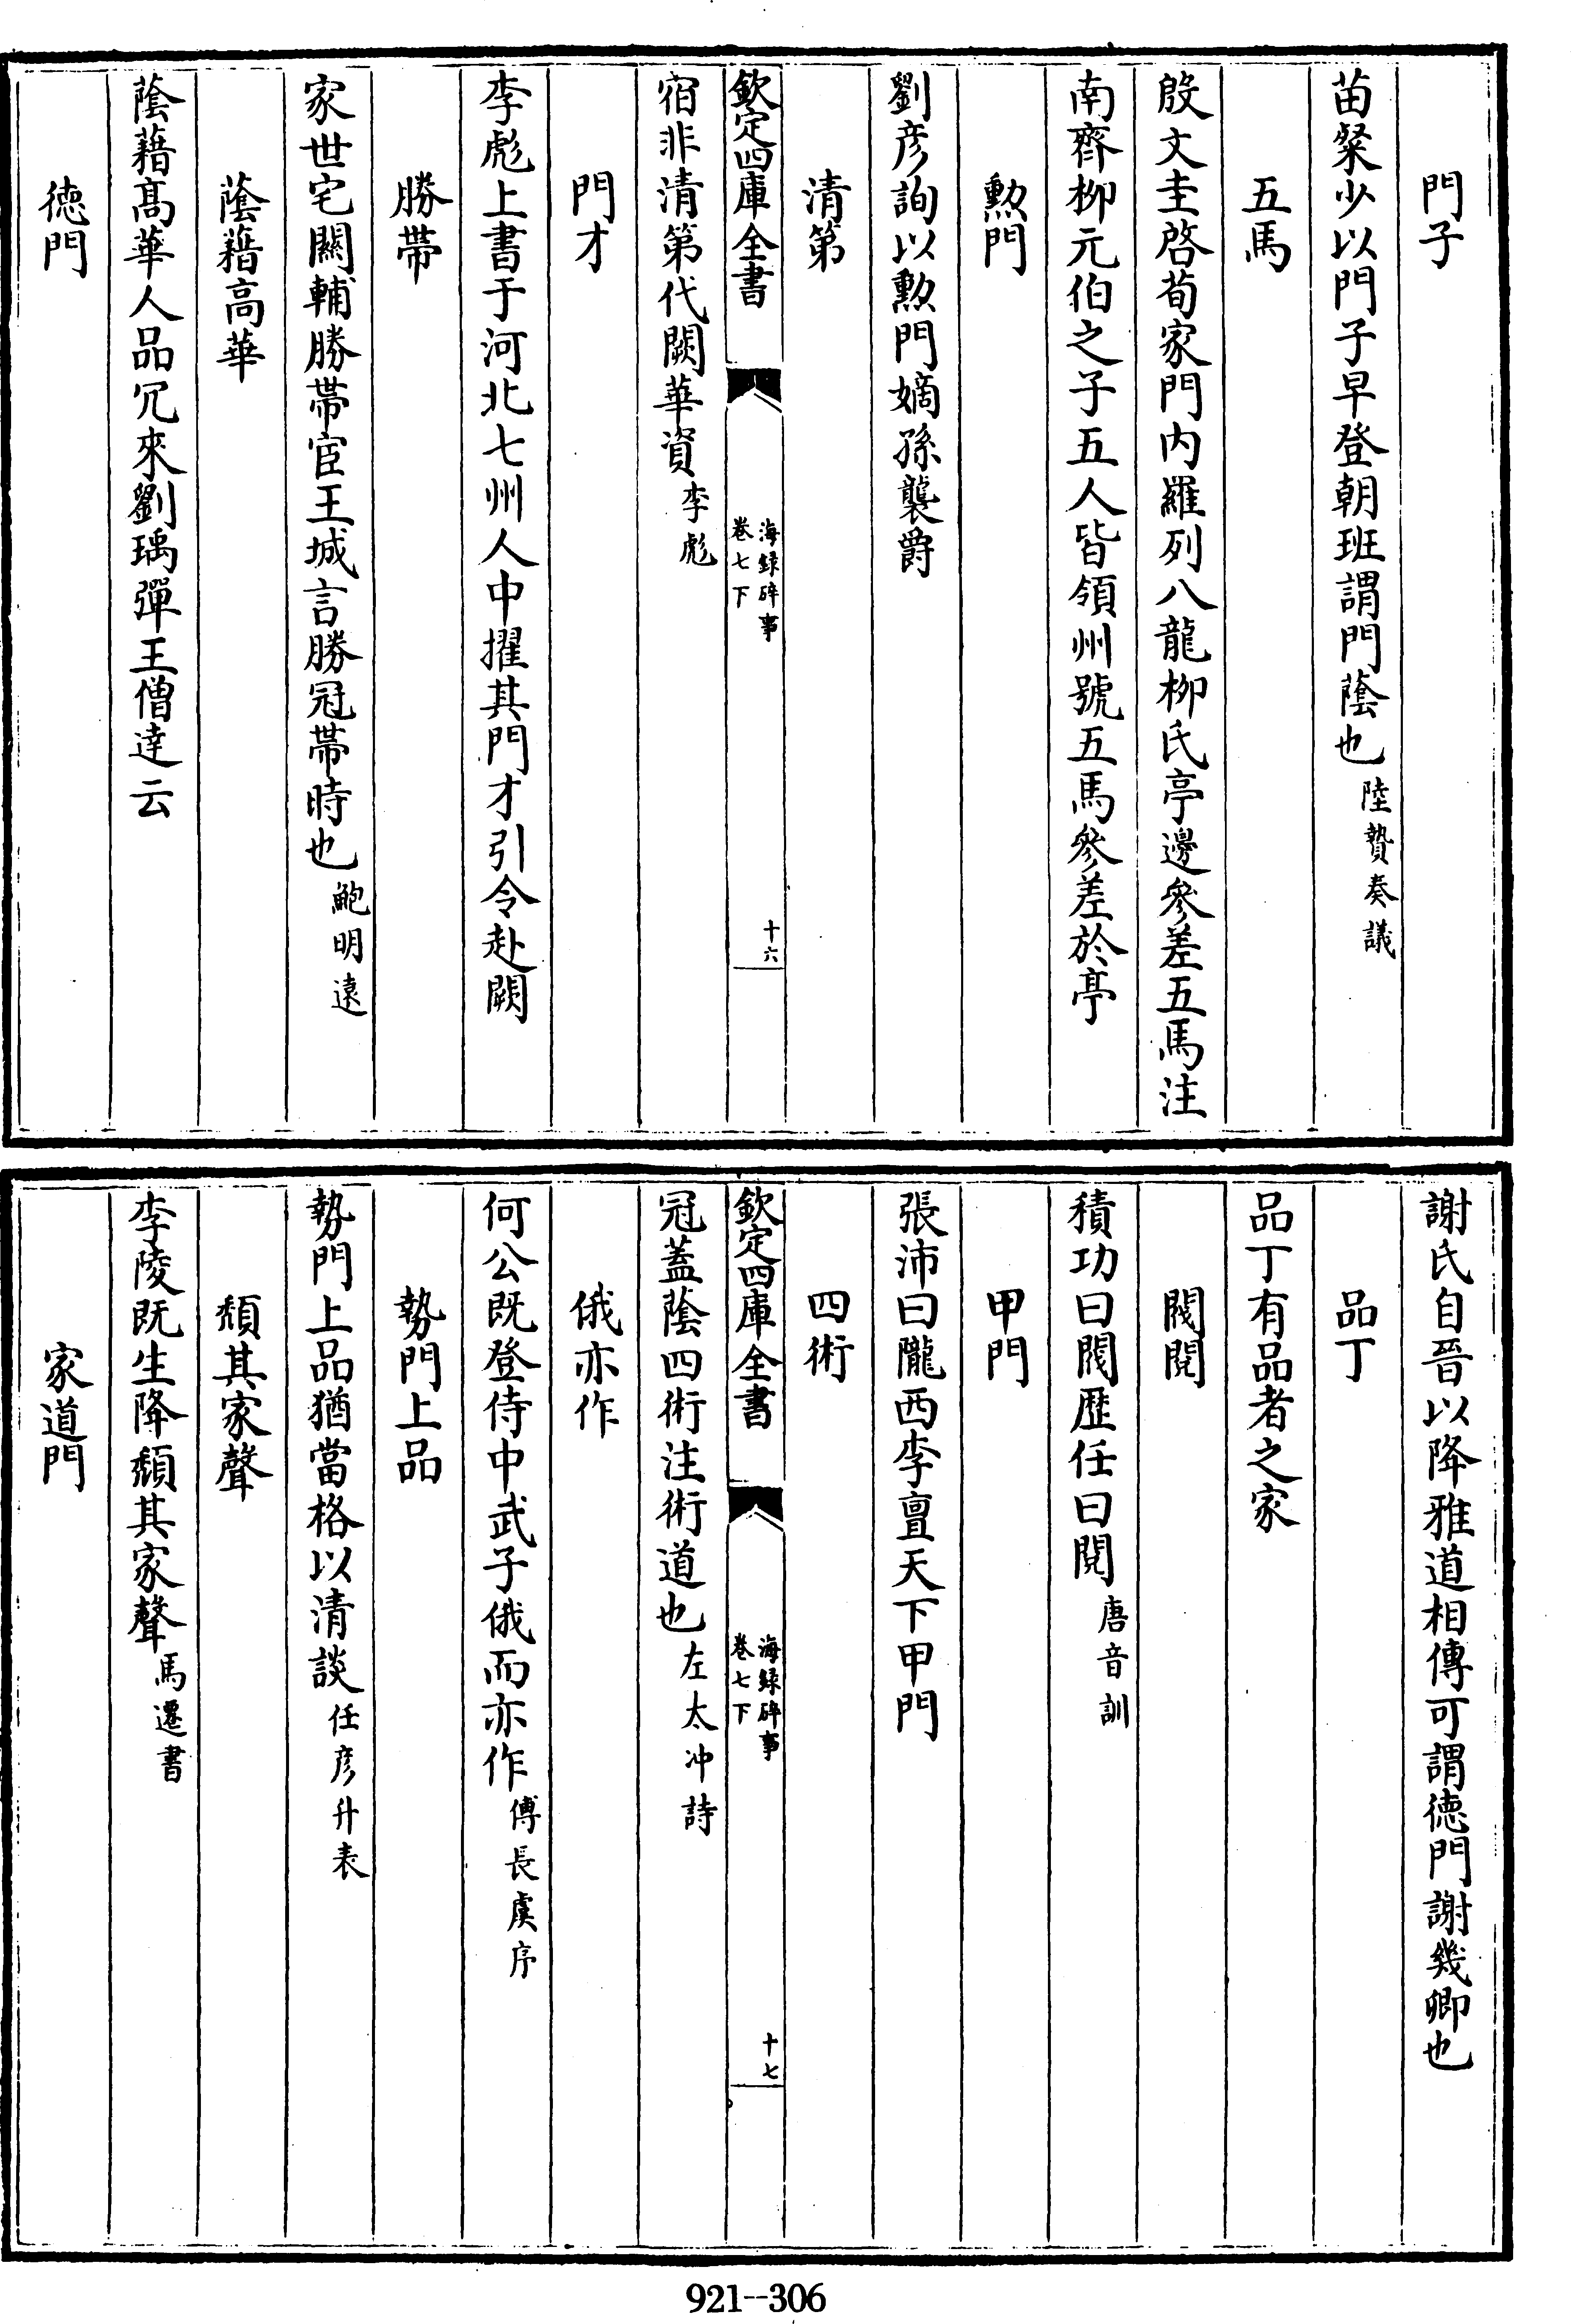 門子
苗粲少以門子早登朝班謂門蔭也陸贄奏議
五馬
殷文圭啓荀家門内羅列八龍柳氏亭邊參差五馬注
南齊柳元伯之子五人皆領州號五馬參差於亭
勲門
劉彦詢以勲門嫡孫襲爵
清第
欽定四庫全書
海録碎事
卷七下
十六
宿非清第代闕華資李彪
門才
李彪上書于河北七州人中擢其門才引令赴闕
勝帶
家世宅關輔勝帶宦王城言勝冠帶時也鮑明遠
蔭藉高華
蔭藉髙華人品冗來劉瑀彈王僧達云
徳門
謝氏自晉以降雅道相傳可謂徳門謝幾卿也
品丁
品丁有品者之家
閥閲
積功曰閥歴任曰閲唐音訓
甲門
張沛曰隴西李亶天下甲門
四術
欽定四庫全書
海録碎事
卷七下
十七
冠蓋蔭四術注術道也左太冲詩
俄亦作
何公既登侍中武子俄而亦作傅長虞序
勢門上品
勢門上品猶當格以清談任彦升表
頽其家聲
李陵既生降頽其家聲馬遷書
家道門
921--306